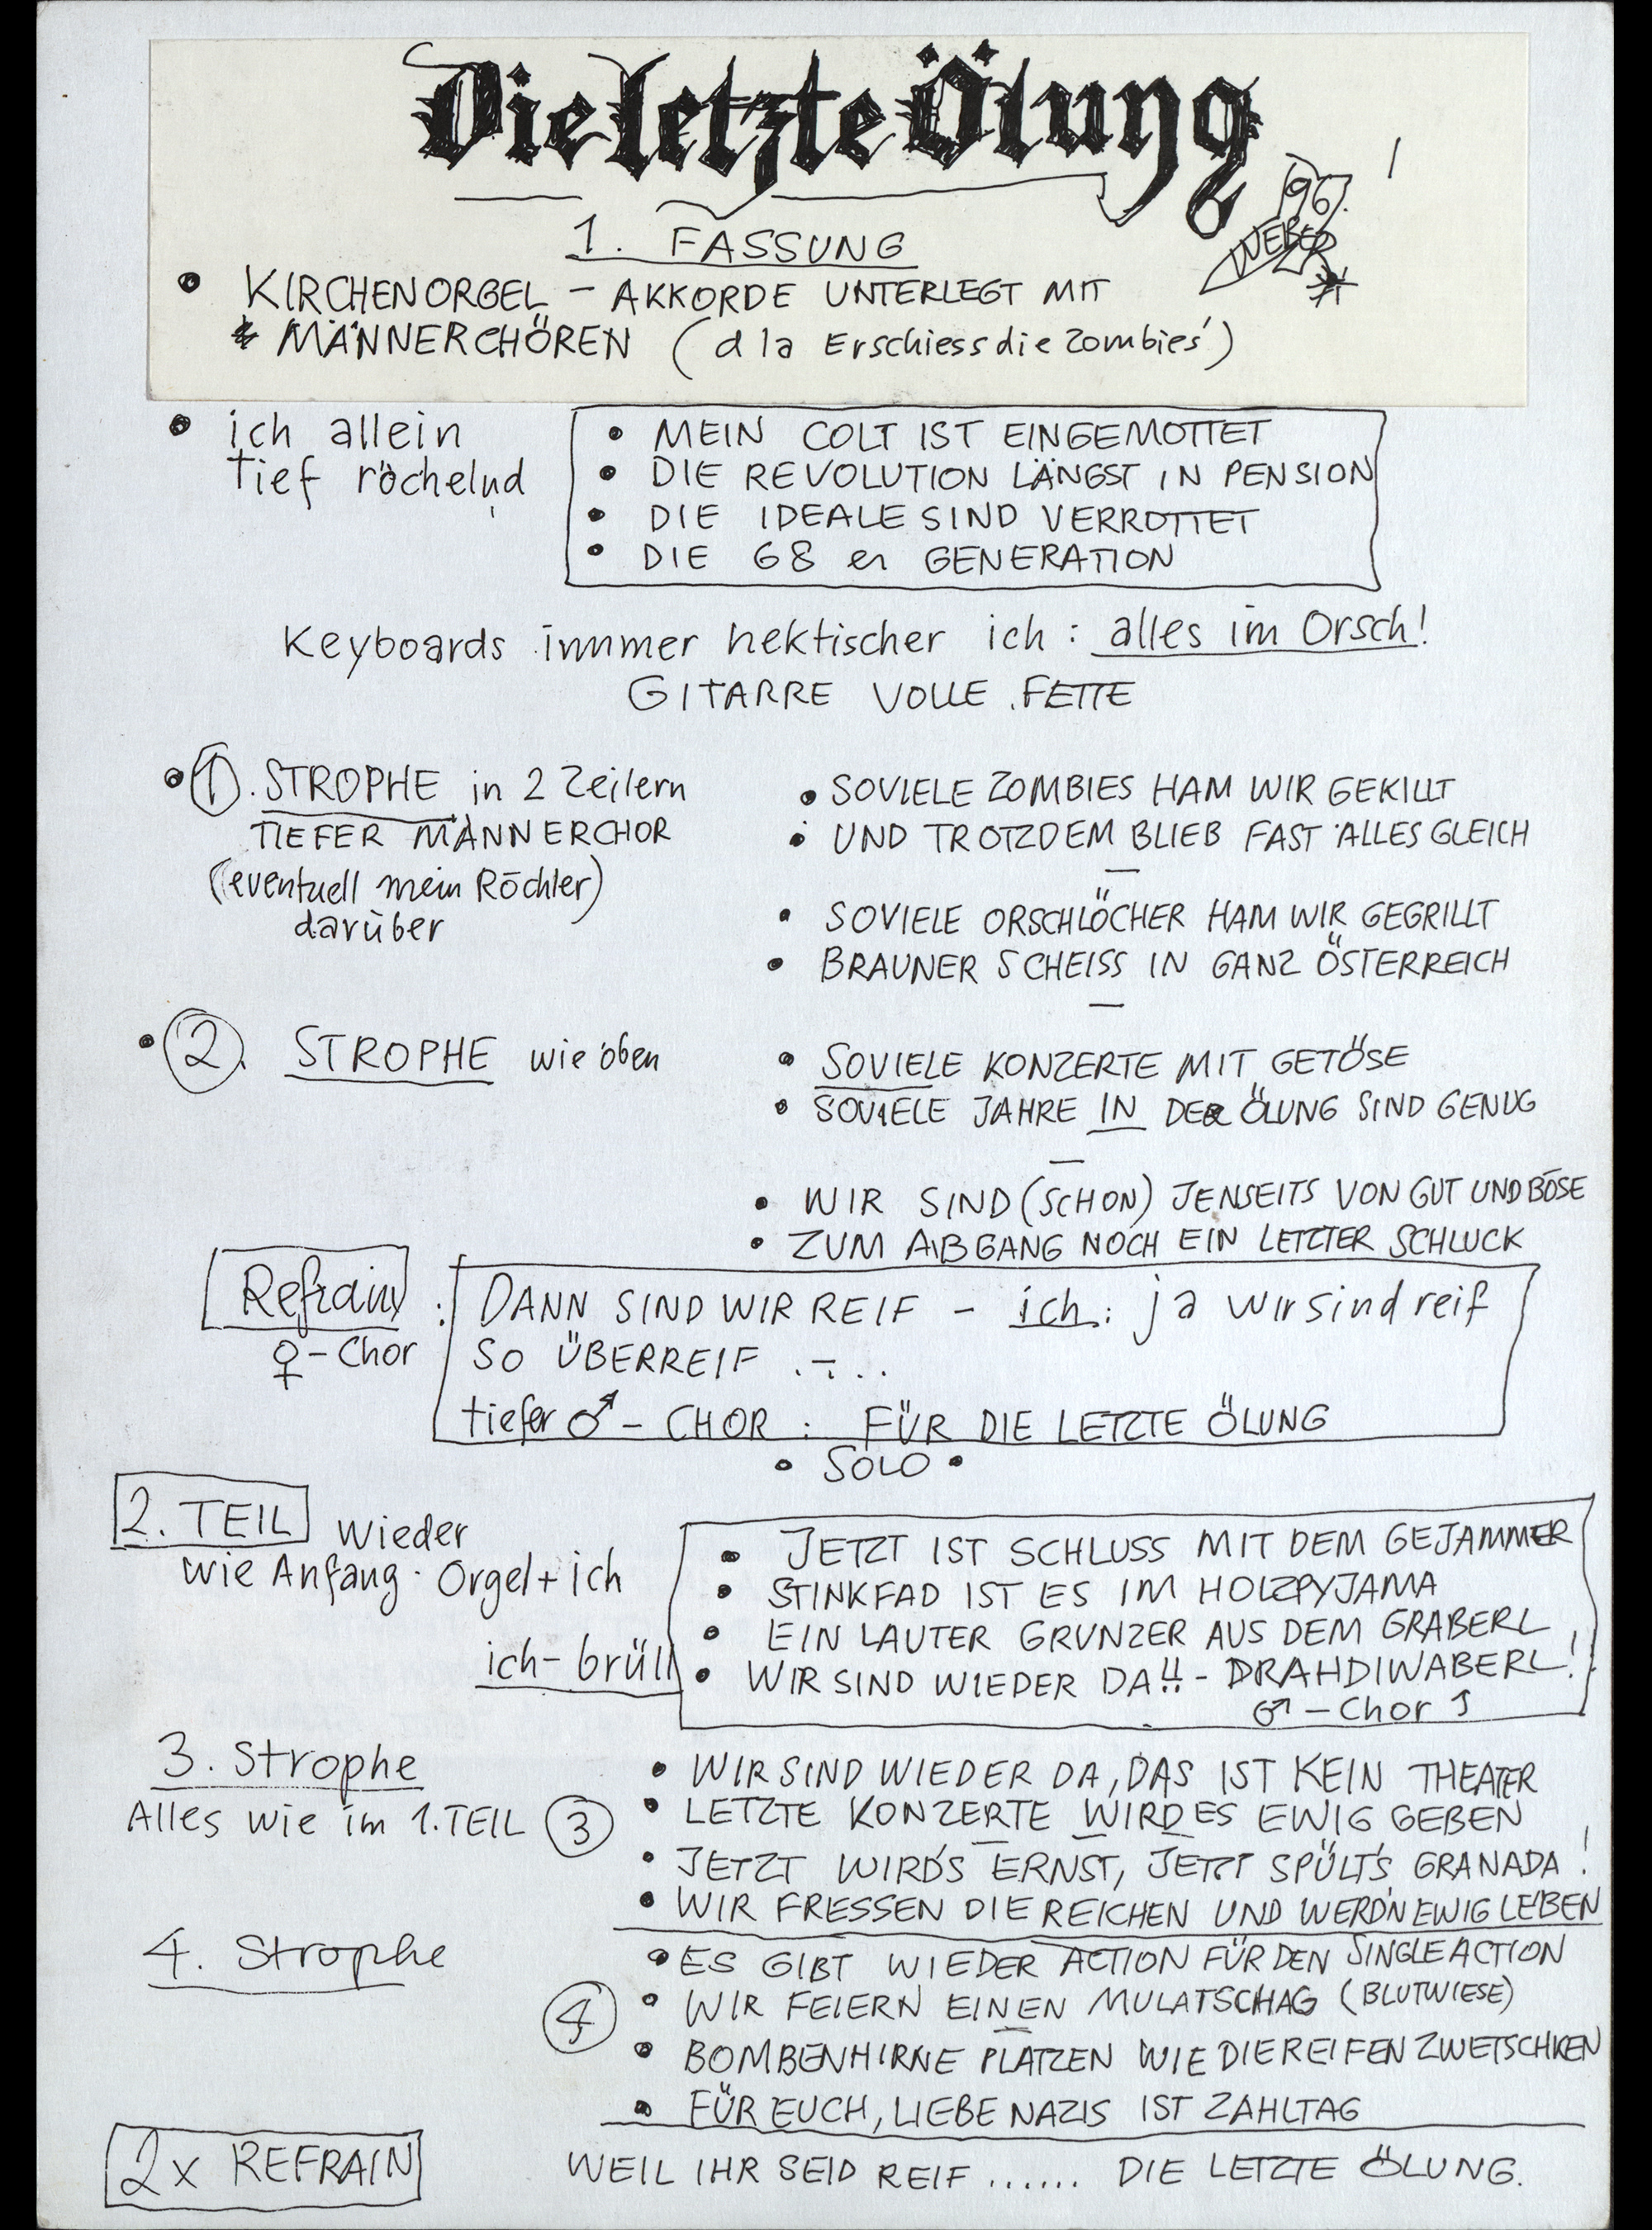 Die letzte Ölung
96.
WEBER
1. FASSUNG
• KIRCHENORGEL – AKKORDE UNTERLEGT MIT
MÄNNERCHÖREN (a la Erschiess die Zombies')
• ich allein
tief röchelnd
• MEIN COLT IST EINGEMOTTET
• DIE REVOLUTION LÄNGST IN PENSION
• DIE IDEALE SIND VERROTTET
• DIE 68 er GENERATION
Keyboards immer hektischer ich: alles im Orsch!
GITARRE VOLLE FETTE
• 1. STROPHE in 2 Zeilern
TIEFER MÄNNERCHOR
(eventuell mein Röchler)
darüber
• SOVIELE ZOMBIES HAM WIR GEKILLT
• UND TROTZDEM BLIEB FAST ALLES GLEICH
—
• SOVIELE ORSCHLÖCHER HAM WIR GEGRILLT
• BRAUNER SCHEISS IN GANZ ÖSTERREICH
—
• 2. STROPHE wie oben
• SOVIELE KONZERTE MIT GETÖSE
• SOVIELE JAHRE IN DER ÖLUNG SIND GENUG
—
• WIR SIND (SCHON) JENSEITS VON GUT UND BÖSE
• ZUM ABGANG NOCH EIN LETZTER SCHLUCK
Refrain :
♀ – Chor
DANN SIND WIR REIF – ich: ja wir sind reif
SO ÜBERREIF . – . .
tiefer ♂ – CHOR : FÜR DIE LETZTE ÖLUNG
• SOLO •
2. TEIL wieder
wie Anfang · Orgel + ich
ich – brüll
• JETZT IST SCHLUSS MIT DEM GEJAMMER
• STINKFAD IST ES IM HOLZPYJAMA
• EIN LAUTER GRUNZER AUS DEM GRABERL
• WIR SIND WIEDER DA!! – DRAHDIWABERL!
♂ – Chor ↑
3. Strophe
Alles wie im 1. TEIL 3
• WIR SIND WIEDER DA, DAS IST KEIN THEATER
• LETZTE KONZERTE WIRD ES EWIG GEBEN
• JETZT WIRD'S ERNST, JETZT SPÜLT'S GRANADA!
• WIR FRESSEN DIE REICHEN UND WERD'N EWIG LEBEN
4. Strophe
4
• ES GIBT WIEDER ACTION FÜR DEN SINGLE ACTION
• WIR FEIERN EINEN MULATSCHAG (BLUTWIESE)
• BOMBENHIRNE PLATZEN WIE DIE REIFEN ZWETSCHKEN
• FÜR EUCH, LIEBE NAZIS IST ZAHLTAG
2x REFRAIN
WEIL IHR SEID REIF ...... DIE LETZTE ÖLUNG.